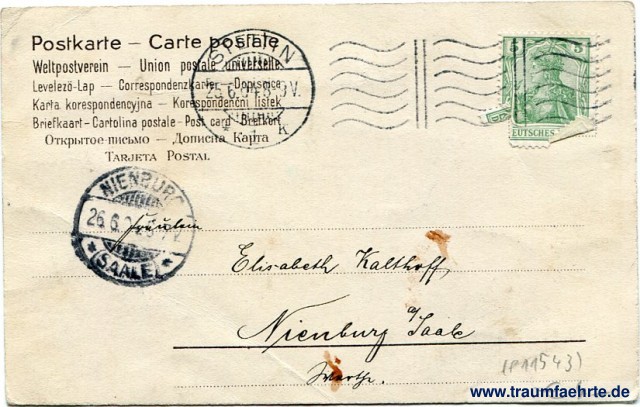 Postkarte – Carte postale
Weltpostverein – Union postale universelle
Levelező-Lap – Correspondenzkarte – Dopisnice
Karta korespondencyjna – Korespondenční lístek
Briefkaart – Cartolina postale – Post card – Brefkort
Открытое письмо – Дописна Карта
TARJETA POSTAL
25.6.04.8-9V.
1 k
5 5
EUTSCHES
NIENBURG
26.6.
* (SAALE) *
Fräulein
Elisabeth Kalthoff,
Nienburg a/Saale
www.traumfaehrte.de